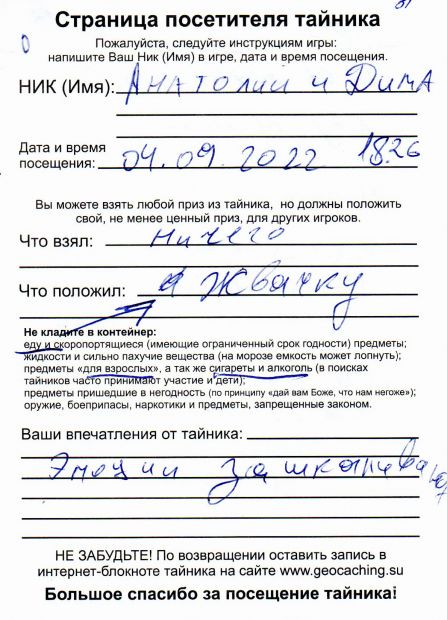 Страница посетителя тайника
Пожалуйста, следуйте инструкциям игры:
напишите Ваш Ник (Имя) в игре, дата и время посещения.
НИК (Имя): Анатолий и Дима
Дата и время
посещения: 04.09.2022 18.26
Вы можете взять любой приз из тайника, но должны положить
свой, не менее ценный приз, для других игроков.
Что взял: ничего
Что положил: жвачку
Не кладите в контейнер:
еду и скоропортящиеся (имеющие ограниченный срок годности) предметы;
жидкости и сильно пахучие вещества (на морозе емкость может лопнуть);
предметы «для взрослых», а так же сигареты и алкоголь (в поисках
тайников часто принимают участие и дети);
предметы пришедшие в негодность (по принципу «дай вам Боже, что нам негоже»);
оружие, боеприпасы, наркотики и предметы, запрещенные законом.
Ваши впечатления от тайника:
Эмоции зашкаливают
НЕ ЗАБУДЬТЕ! По возвращении оставить запись в
интернет-блокноте тайника на сайте www.geocaching.su
Большое спасибо за посещение тайника!